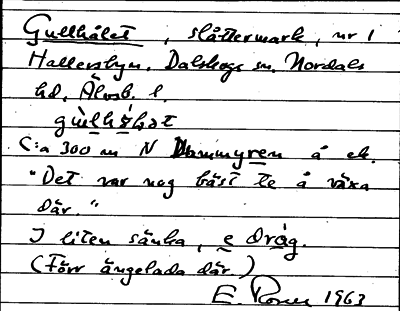 Gullhålet, slåttermark, nr 1
Hallersbyn, Dalskogs sn, Nordals
hd, Älvsb. l.
C:a 300 m N Dammyren å ek.
"Det var nog bäst te å växa
där."
I liten sänka, e dråg.
(Förr ängelada där)
E. 1963